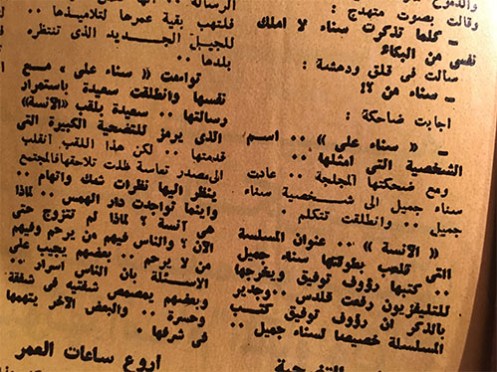 والدموع
وقالت بصوت متهدج :
ـ كلما تذكرت سناء لا املك
نفسى من البكاء
سالت فى قلق ودهشة :
ـ سناء من ؟!
اجابت ضاحكة :
ـ « سناء على » .. اسم
الشخصية التى امثلها ..
ومع ضحكتها المجلجلة .. عادت
سناء جميل الى شخصية سناء
جميل .. وانطلقت تتكلم .
« الآنسة » .. عنوان المسلسلة
التى تلعب بطولتها سناء جميل
.. كتبها رؤوف توفيق ويخرجها
للتليفزيون رفعت قلدس .. وجدير
بالذكر ان رؤوف توفيق كتب
المسلسلة خصيصا لسناء جميل ..
الرسالة
فلتهب بقية عمرها لتلاميذها ..
للجيل الجديد الذى تنتظره
بلدها ..
تواءمت « سناء على » مع
نفسها وانطلقت سعيدة باستمرار
رسالتها .. سعيدة بلقب «الآنسة»
الذى يرمز للتضحية الكبيرة التى
قدمتها .. لكن هذا اللقب انقلب
الى مصدر تعاسة ظلت تلاحقها فالمجتمع
ينظر اليها نظرات شك واتهام ..
واينما تواجدت دار الهمس .. لماذا
هى آنسة ؟ لماذا لم تتزوج حتى
الآن ؟ والناس فيهم من يرحم وفيهم
من لا يرحم .. بعضهم يجيب على
الاسئلة بان الناس اسرار ..
وبعضهم يمصمص شفتيه فى شفقة
وحسرة .. والبعض الآخر يتهمها
فى شرفها .
اروع ساعات العمر